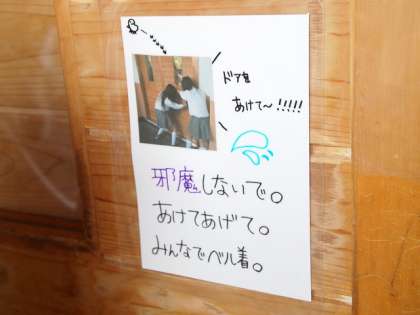 ドアを
あけて〜!!!!!
邪魔しないで。
あけてあげて。
みんなでベル着。